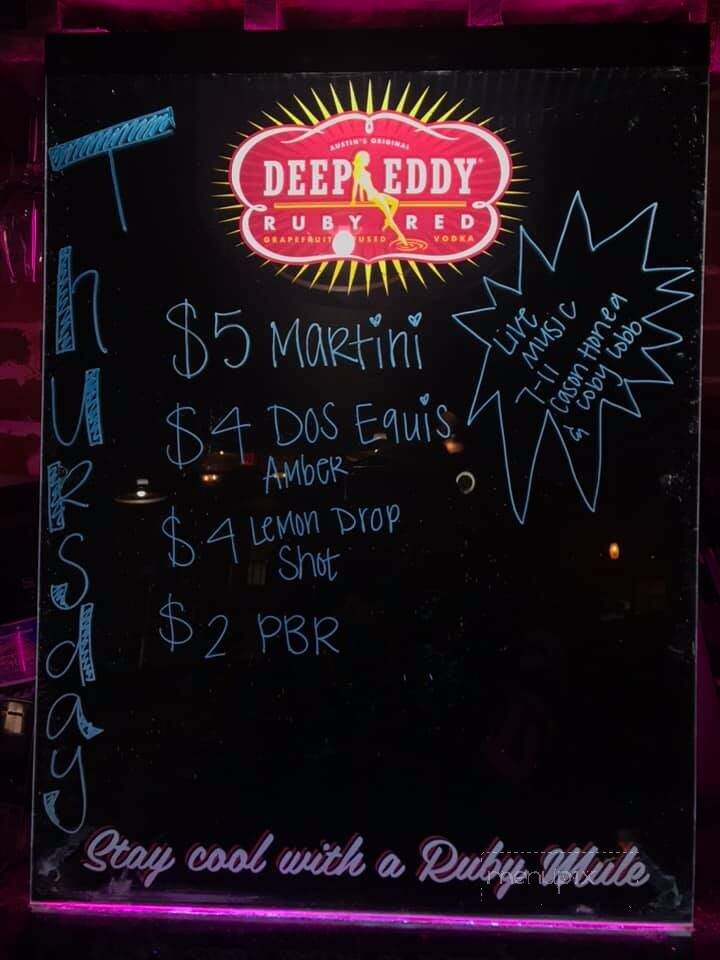 Thursday
AUSTIN'S ORIGINAL
DEEP EDDY
RUBY RED
GRAPEFRUIT VODKA
$5 Martini
$4 Dos Equis
Amber
$4 Lemon Drop
Shot
$2 PBR
Live
Music
7-11
Cason Honea
& Coby Cobb
Stay cool with a Ruby Mule
menupix